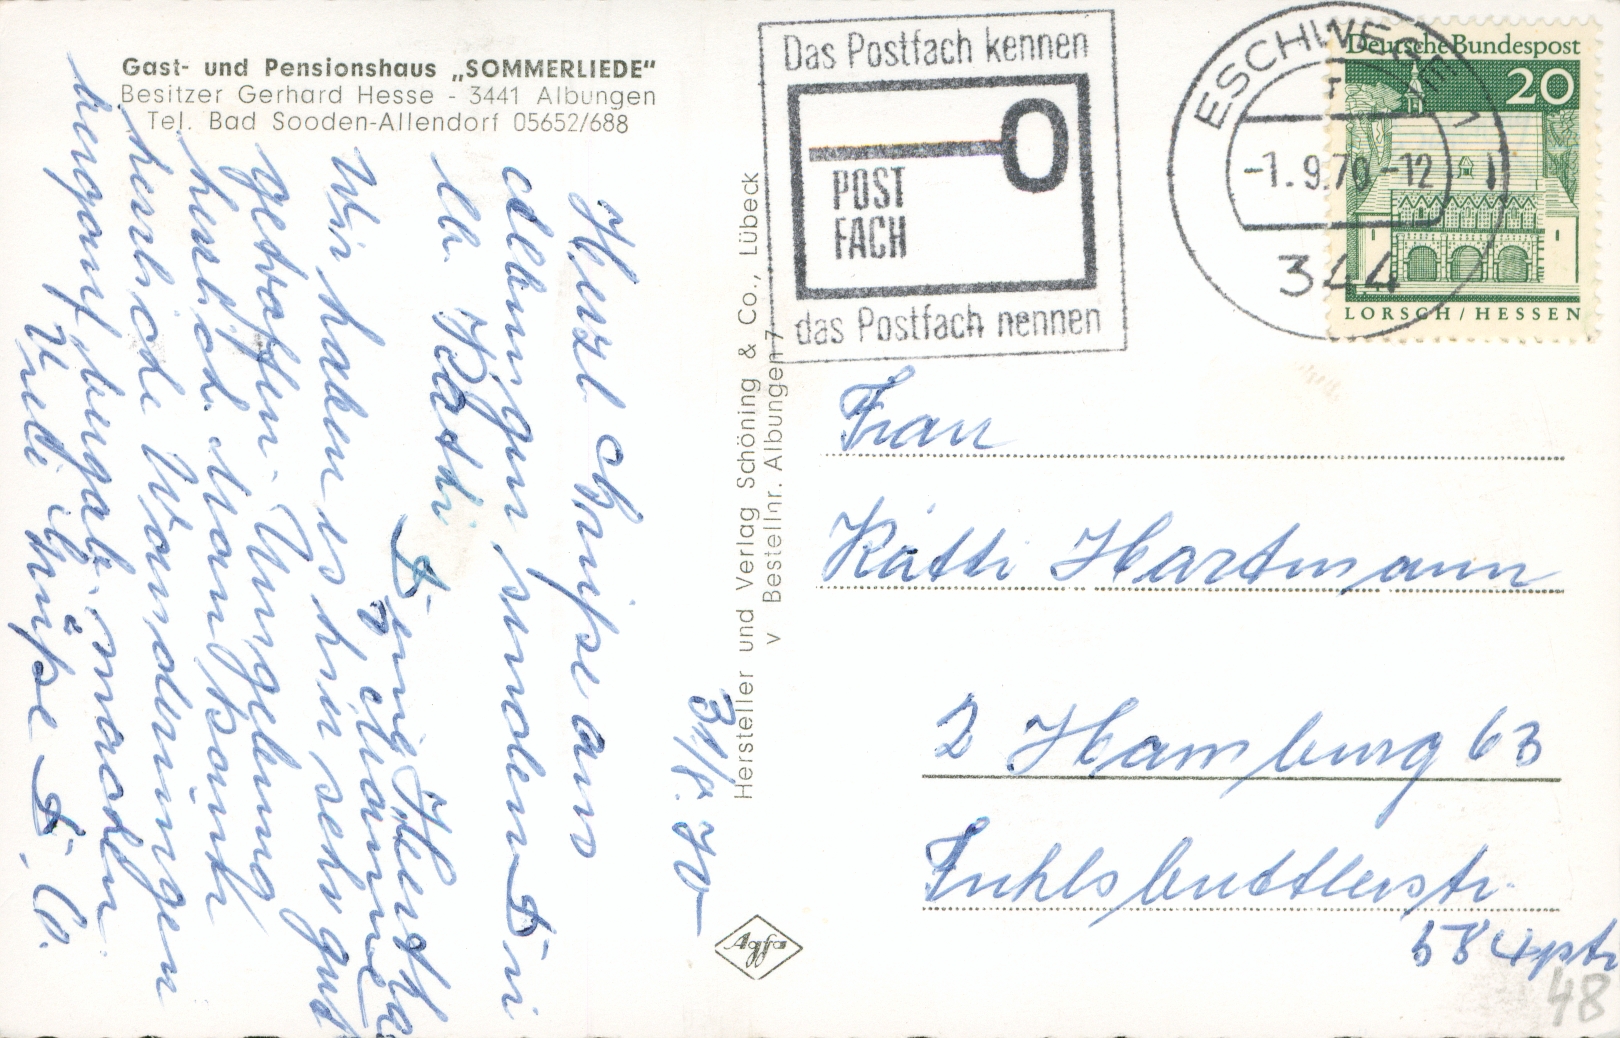 Gast- und Pensionshaus „SOMMERLIEDE"
Besitzer Gerhard Hesse - 3441 Albungen
Tel. Bad Sooden-Allendorf 05652/688
31/8. 70
Herzl Grüße aus
Albungen senden Dir
lb. Kätti
Wir haben es hier sehr gut
getroffen. Umgebung
herrlich. Man kann
herrliche Wanderungen
bergauf, bergab machen
Viele lb Grüße D. O.
Hersteller und Verlag Schöning & Co., Lübeck
V Bestellnr. Albungen 7
Agfa
Das Postfach kennen
POST
FACH
das Postfach nennen
ESCHWEGE 1
-1.9.70-12
344
Deutsche Bundespost
20
LORSCH/HESSEN
Frau
Kätti Hartmann
2 Hamburg 63
Fuhlsbüttlerstr.
48